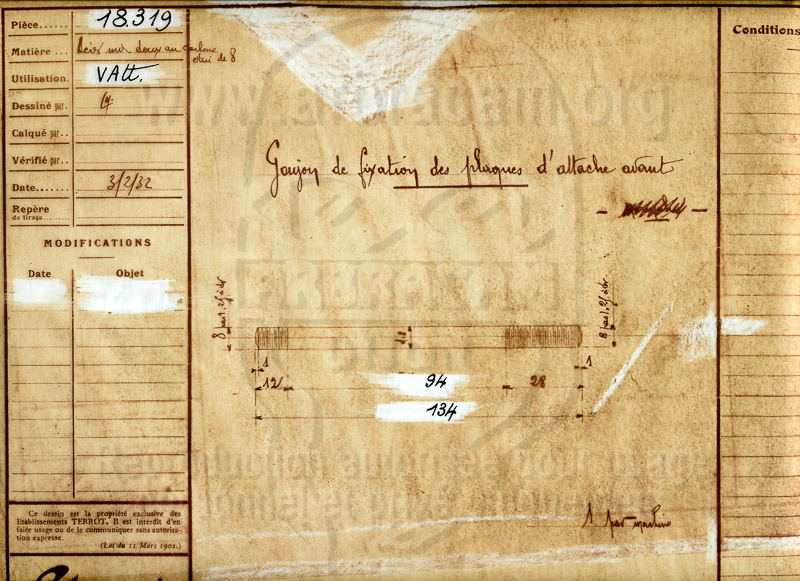 Pièce... 18.319
Matière... Acier mi doux au carbone
étiré de 8
Utilisation. VAtt.
Dessiné par.
Calqué par..
Vérifié par..
Date....... 3/2/32
Repère
de tirage........
MODIFICATIONS
Date Objet
Ce dessin est la propriété exclusive des
Etablissements TERROT. Il est interdit d'en
faire usage ou de le communiquer sans autorisa-
tion expresse.
(Loi du 11 Mars 1902.)
www.abrracani.org
Goujon de fixation des plaques d'attache avant
8 pas 1,25
8 pas 1,25
1
1
12
94
28
134
Reproduction autorisée pour usage
1 par machine
Conditions